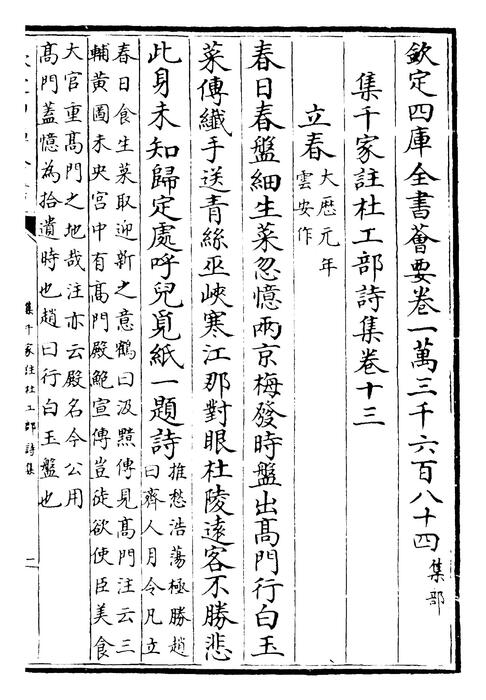 欽定四庫全書薈要卷一萬三千六百八十四集部
集千家註杜工部詩集卷十三
立春大厯元年雲安作
春日春盤細生菜忽憶兩京梅發時盤出髙門行白玉
菜傳纖手送青絲巫峽寒江那對眼杜陵逺客不勝悲
此身未知歸定處呼兒覓紙一題詩推愁浩蕩極勝趙曰齊人月令凡立
春日食生菜取迎新之意鶴曰汲黯傳見髙門注云三
輔黄圖未央宫中有髙門殿鮑宣傳豈徒欲使臣美食
大官重髙門之地哉注亦云殿名今公用
髙門蓋憶為拾遺時也趙曰行白玉盤也
集千家註杜工部詩集